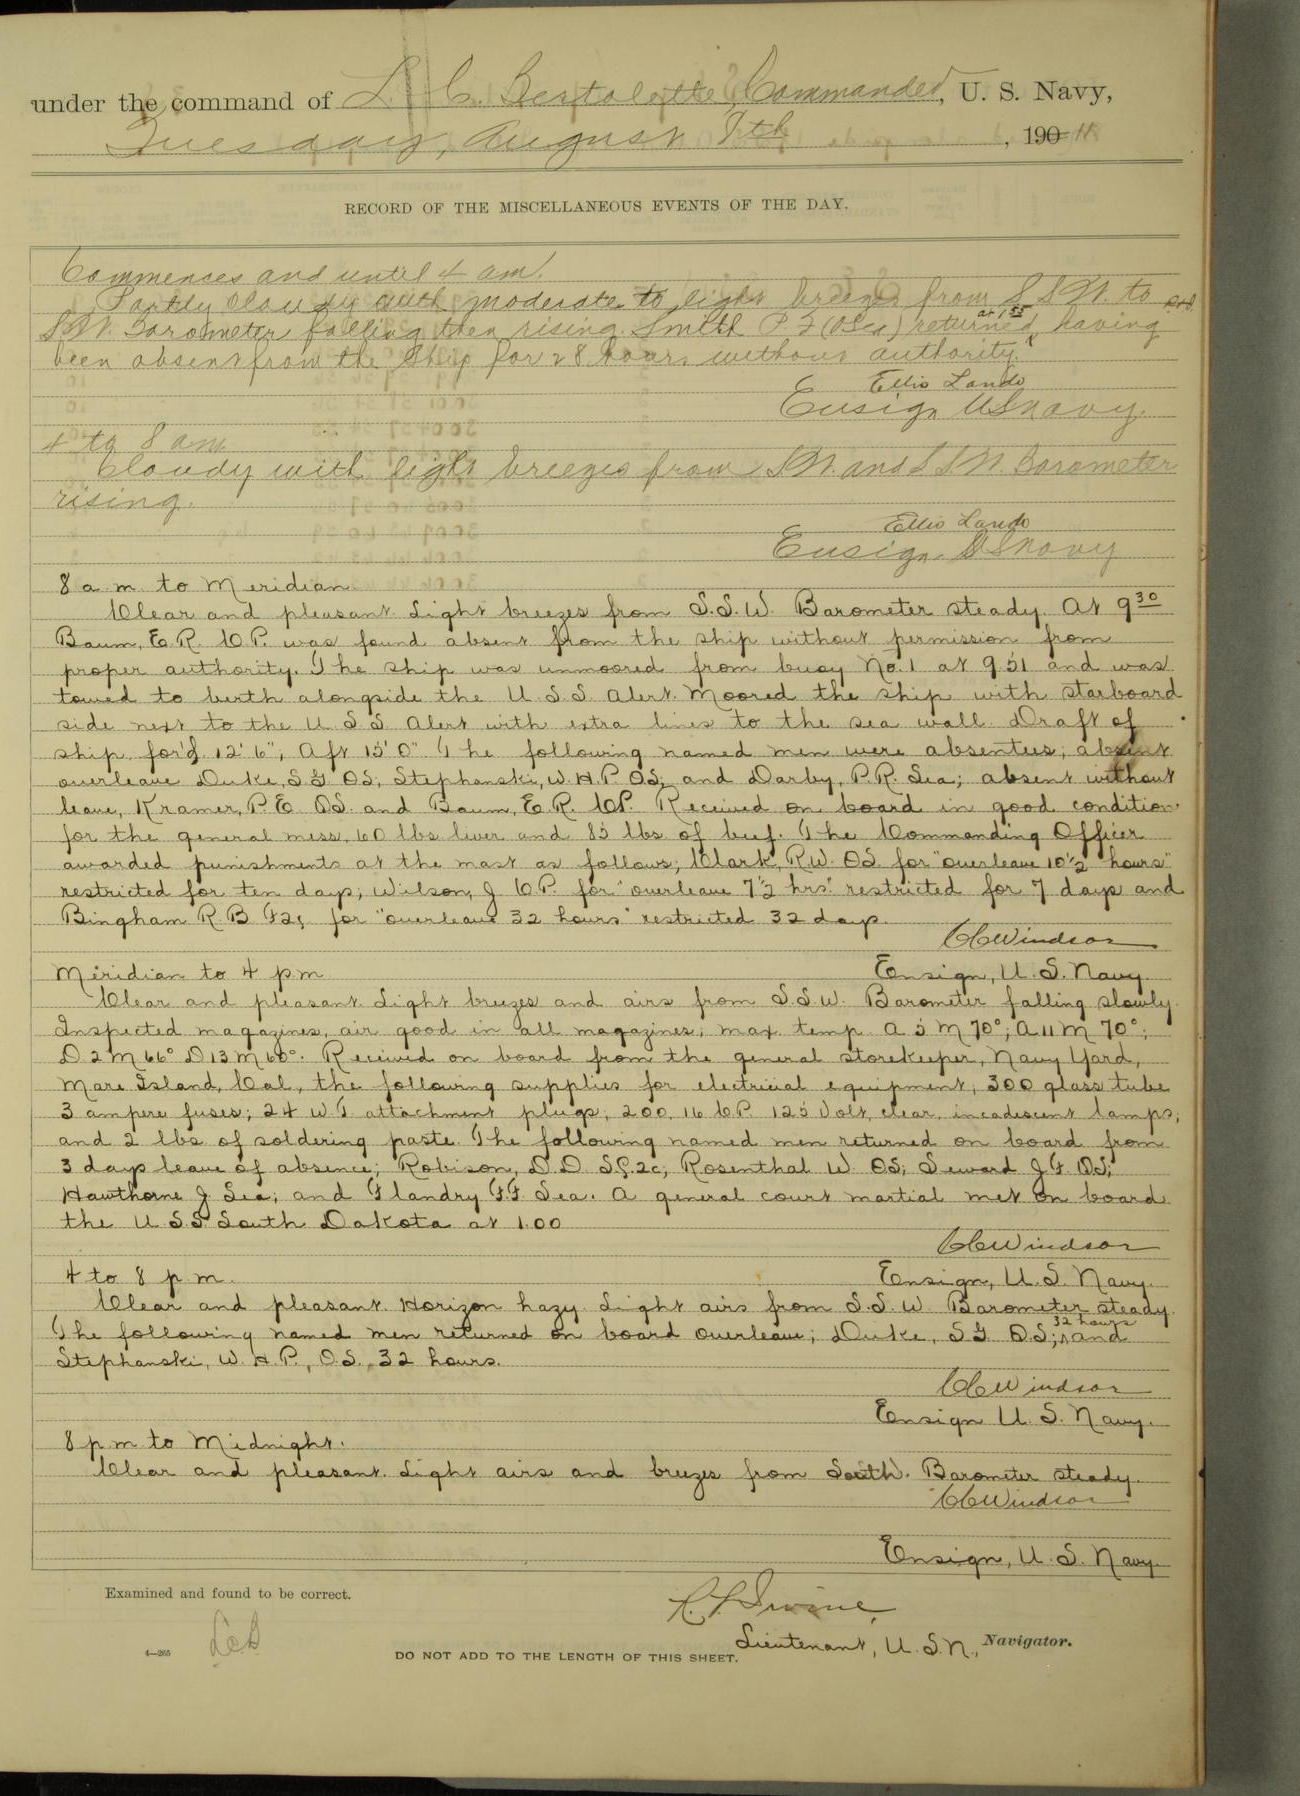 under the command of L. C. Bertolette, Commander, U. S. Navy,
Tuesday, August 8th, 190 11
RECORD OF THE MISCELLANEOUS EVENTS OF THE DAY.
Commences and until 4 am.
Partly cloudy with moderate to light breezes from S S W. to
S.W. Barometer falling then rising. Smith P. F (O Sea) returned at 1 55, having
been absent from the ship for 28 hours without authority.
Ellis Lando
Ensign USNavy.
4 to 8 am
Cloudy with light breezes from S.W. and S S W. Barometer
rising.
Ellis Lando
Ensign USNavy
8 a m to Meridian.
Clear and pleasant. Light breezes from S.S.W. Barometer steady. At 9 30
Baum, E.R. C.P. was found absent from the ship without permission from
proper authority. The ship was unmoored from buoy No. 1 at 9 51 and was
towed to berth alongside the U.S.S. Alert. Moored the ship with starboard
side next to the U.S.S. Alert with extra lines to the sea wall. Draft of
ship for'd 12' 6", Aft 13' 0" The following named men were absentees; absent
overleave Duke, S.G OS, Stephanski, W.H.P. OS; and Darby, P.R. Sea; absent without
leave, Kramer, P.E. OS. and Baum, E.R. C.P. Received on board in good condition
for the general mess, 60 lbs liver and 85 lbs of beef. The Commanding Officer
awarded punishments at the mast as follows; Clark, R.W. OS. for "overleave 10 1/2 hours"
restricted for ten days; Wilson, J C.P. for "overleave 7 1/2 hrs." restricted for 7 days and
Bingham R.B F2c for "overleave 32 hours" restricted 32 days.
CC Windsor
Ensign, U.S. Navy.
Meridian to 4 p m
Clear and pleasant. Light breezes and airs from S.S.W. Barometer falling slowly.
Inspected magazines, air good in all magazines; max. temp. A 5 M 70°; A 11 M 70°;
D 2 M 66° D 13 M 60°. Received on board from the general storekeeper, Navy Yard,
Mare Island, Cal., the following supplies for electricial equipment; 300 glass tube
3 ampere fuses; 24 W.P. attachment plugs; 200, 16 C.P. 125 Volt, clear, incadescent lamps;
and 2 lbs of soldering paste. The following named men returned on board from
3 days leave of absence; Robison, D.D. S.F.2c; Rosenthal W. OS; Seward J.F. OS;
Hawthorne J. Sea; and Flandry F.F. Sea. A general court martial met on board
the U.S.S. South Dakota at 1.00
CC Windsor
Ensign, U.S. Navy.
4 to 8 p m.
Clear and pleasant. Horizon hazy. Light airs from S.S.W. Barometer steady.
The following named men returned on board overleave; Duke, S.G O.S; 32 hours and
Stephanski, W.H.P., O.S., 32 hours.
CC Windsor
Ensign U.S. Navy.
8 p m to Midnight.
Clear and pleasant. Light airs and breezes from South. Barometer steady.
CC Windsor
Ensign, U.S. Navy.
Examined and found to be correct.
LCB
R. P. Irvine,
Lieutenant, U.S.N., Navigator.
4—265
DO NOT ADD TO THE LENGTH OF THIS SHEET.